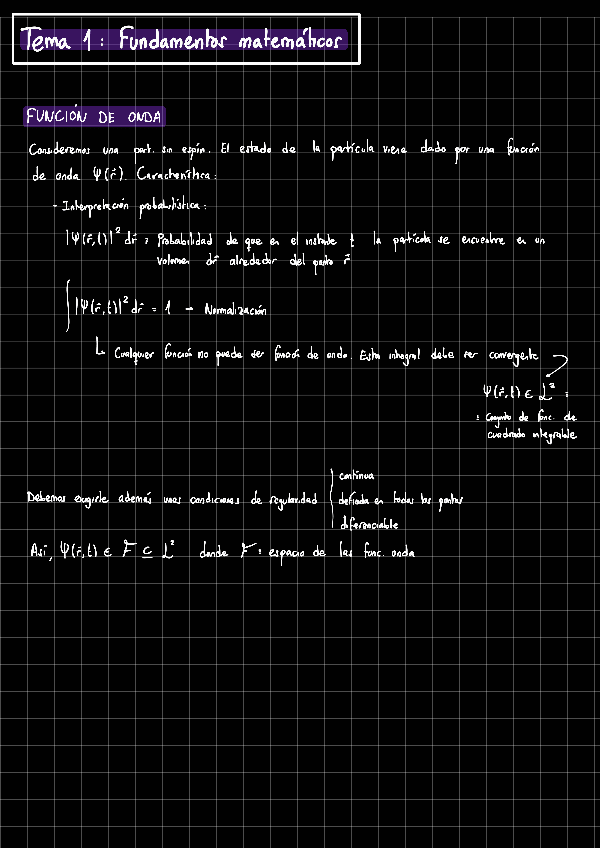 Tema 1: Fundamentos matemáticos
FUNCIÓN DE ONDA
Consideremos una part. sin espín. El estado de la partícula viene dado por una función
de onda Ψ(r⃗). Característica:
- Interpretación probabilística:
|Ψ(r⃗,t)|² dr⃗ : Probabilidad de que en el instante t la partícula se encuentre en un
volumen dr⃗ alrededor del punto r⃗
∫|Ψ(r⃗,t)|² dr⃗ = 1 → Normalización
↳ Cualquier función no puede ser función de onda. Esta integral debe ser convergente
Ψ(r⃗,t) ∈ L² :
: Conjunto de func. de
cuadrado integrable
continua
Debemos exigirle además unas condiciones de regularidad definida en todos los puntos
diferenciable
Así, Ψ(r⃗,t) ∈ F ⊆ L² donde F : espacio de las func. onda